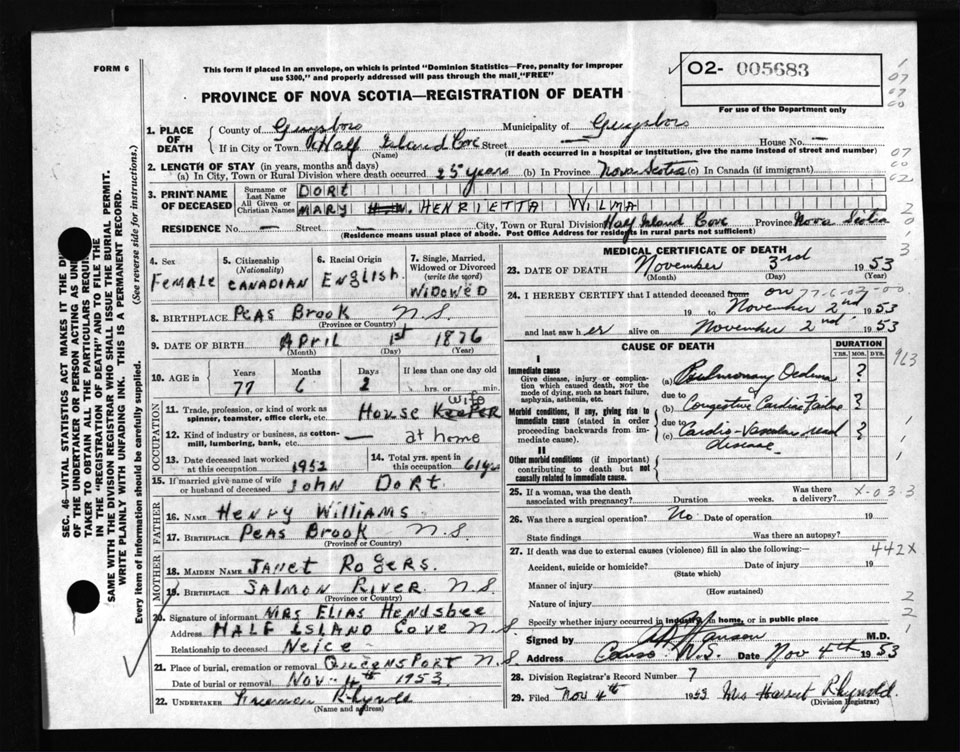 FORM 6
This form if placed in an envelope, on which is printed "Dominion Statistics—Free, penalty for improper
use $300," and properly addressed will pass through the mail "FREE"
PROVINCE OF NOVA SCOTIA—REGISTRATION OF DEATH
02- 005683
For use of the Department only
1. PLACE OF DEATH
County of Guysboro Municipality of Guysboro
If in City or Town Half Island Cove Street — House No. —
(Name) (If death occurred in a hospital or institution, give the name instead of street and number)
2. LENGTH OF STAY (in years, months and days)
(a) In City, Town or Rural Division where death occurred 25 years (b) In Province Nova Scotia (c) In Canada (if immigrant)
3. PRINT NAME OF DECEASED
Surname or Last Name DORT
All Given or Christian Names MARY HENRIETTA WILMA
RESIDENCE No. — Street — City, Town or Rural Division Half Island Cove Province Nova Scotia
(Residence means usual place of abode. Post Office Address for residents in rural parts not sufficient)
4. Sex
FEMALE
5. Citizenship (Nationality)
CANADIAN
6. Racial Origin
ENGLISH.
7. Single, Married, Widowed or Divorced (write the word)
WIDOWED
8. BIRTHPLACE PEAS BROOK N.S.
(Province or Country)
9. DATE OF BIRTH APRIL 1st 1876
(Month) (Day) (Year)
10. AGE in
Years Months Days If less than one day old
77 6 2 hrs. or min.
OCCUPATION
11. Trade, profession, or kind of work as spinner, teamster, office clerk, etc. House KEEPER wife
12. Kind of industry or business, as cotton-mill, lumbering, bank, etc. — at home
13. Date deceased last worked at this occupation 1952
14. Total yrs. spent in this occupation 61 yrs
15. If married give name of wife or husband of deceased JOHN DORT.
FATHER
16. NAME HENRY WILLIAMS
17. BIRTHPLACE PEAS BROOK N.S.
(Province or Country)
MOTHER
18. MAIDEN NAME JANET ROGERS.
19. BIRTHPLACE SALMON RIVER N.S.
(Province or Country)
20. Signature of informant MRS ELIAS HENDSBEE
Address HALF ISLAND COVE N.S.
Relationship to deceased NEICE
21. Place of burial, cremation or removal QUEENSPORT N.S.
Date of burial or removal Nov. 4th 1953.
22. UNDERTAKER Freeman Rhynold
(Name and address)
MEDICAL CERTIFICATE OF DEATH
23. DATE OF DEATH November 3rd 1953
(Month) (Day) (Year)
24. I HEREBY CERTIFY that I attended deceased from on 77-6-02-00
19 to November 2nd 1953
and last saw her alive on November 2nd 1953
CAUSE OF DEATH
DURATION
YRS. MOS. DYS.
I
Immediate cause
Give disease, injury or complication which caused death, not the mode of dying, such as heart failure, asphyxia, asthenia, etc.
(a) Pulmonary Oedema ?
due to
Morbid conditions, if any, giving rise to immediate cause (stated in order proceeding backwards from immediate cause).
(b) Congestive Cardiac Failure ?
due to
(c) Cardio-Vascular renal disease ?
II
Other morbid conditions (if important) contributing to death but not causally related to immediate cause.
25. If a woman, was the death associated with pregnancy? Duration weeks. Was there a delivery? X-033
26. Was there a surgical operation? No Date of operation 19
State findings Was there an autopsy?
27. If death was due to external causes (violence) fill in also the following:—
442X
Accident, suicide or homicide? Date of injury 19
(State which)
Manner of injury
(How sustained)
Nature of injury
Specify whether injury occurred in industry, in home, or in public place
Signed by M.D.
Address Canso N.S. Date Nov 4th 1953
28. Division Registrar's Record Number 7
29. Filed Nov 4th 1953 Mrs Harriet Rhynold.
(Division Registrar)
SEC. 46—VITAL STATISTICS ACT MAKES IT THE
OF THE UNDERTAKER OR PERSON ACTING AS UNDER
TAKER TO OBTAIN ALL THE PARTICULARS REQUIRED
IN THE "REGISTRATION OF DEATH" AND TO FILE THE
SAME WITH THE DIVISION REGISTRAR WHO SHALL ISSUE THE BURIAL PERMIT.
WRITE PLAINLY WITH UNFADING INK. THIS IS A PERMANENT RECORD.
Every item of information should be carefully supplied. (See reverse side for instructions.)